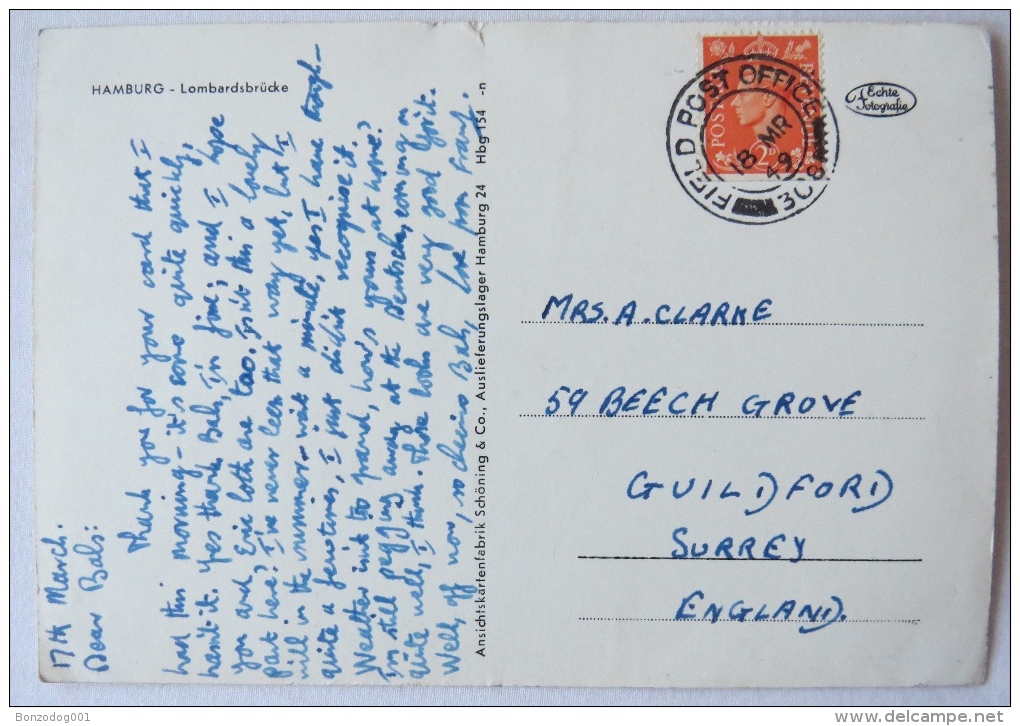 HAMBURG - Lombardsbrücke
17th March.
Dear Bals:
Thank you for your card that I
had this morning - it's come quite quickly,
hasn't it. Yes thank Bals, I'm fine, and I hope
you and Eric both are too. Isn't this a lovely
part here? I've never been that way yet, but I
will in the summer - wait a minute, yes I have though -
quite a few times, I just didn't recognise it.
Weather isn't too grand, how's yours at home?
I'm still pegging away at the Deutsche, coming on
quite well, I think. Those books are very good Yorit.
Well, off now, so cheerio Bals, love from Frank.
Ansichtskartenfabrik Schöning & Co., Auslieferungslager Hamburg 24 Hbg 154 -n
POSTAGE REVENUE
2D
FIELD POST OFFICE
18 MR
49
308
Echte
Fotografie
MRS. A. CLARKE
59 BEECH GROVE
GUILDFORD
SURREY
ENGLAND.
Bonzodog001
www.delcampe.net